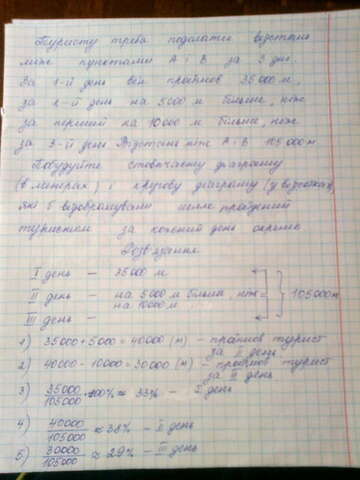 Туристу треба подолати відстань
між пунктами А і В за 3 дні.
За 1-й день він пройшов 35000 м,
за 2-й день на 5000 м більше, ніж
за перший на 10000 м більше, ніж
за 3-й день Відстань між А і В 105000 м
Побудуйте стовпчасту діаграму
(в метрах) і кругову діаграму (у відсотках),
які б відображували шлях пройдений
туристом за кожний день окремо
Розв'язання
I день – 35000 м
II день – на 5000 м більше, ніж
на 10000 м
III день –
105000 м
1) 35000+5000=40000 (м) – пройшов турист
за II день
2) 40000-10000=30000 (м) – пройшов турист
за III день
3) 35000/105000 ·100% ≈ 33% – I день
4) 40000/105000 ≈ 38% – II день
5) 30000/105000 ≈ 29% – III день